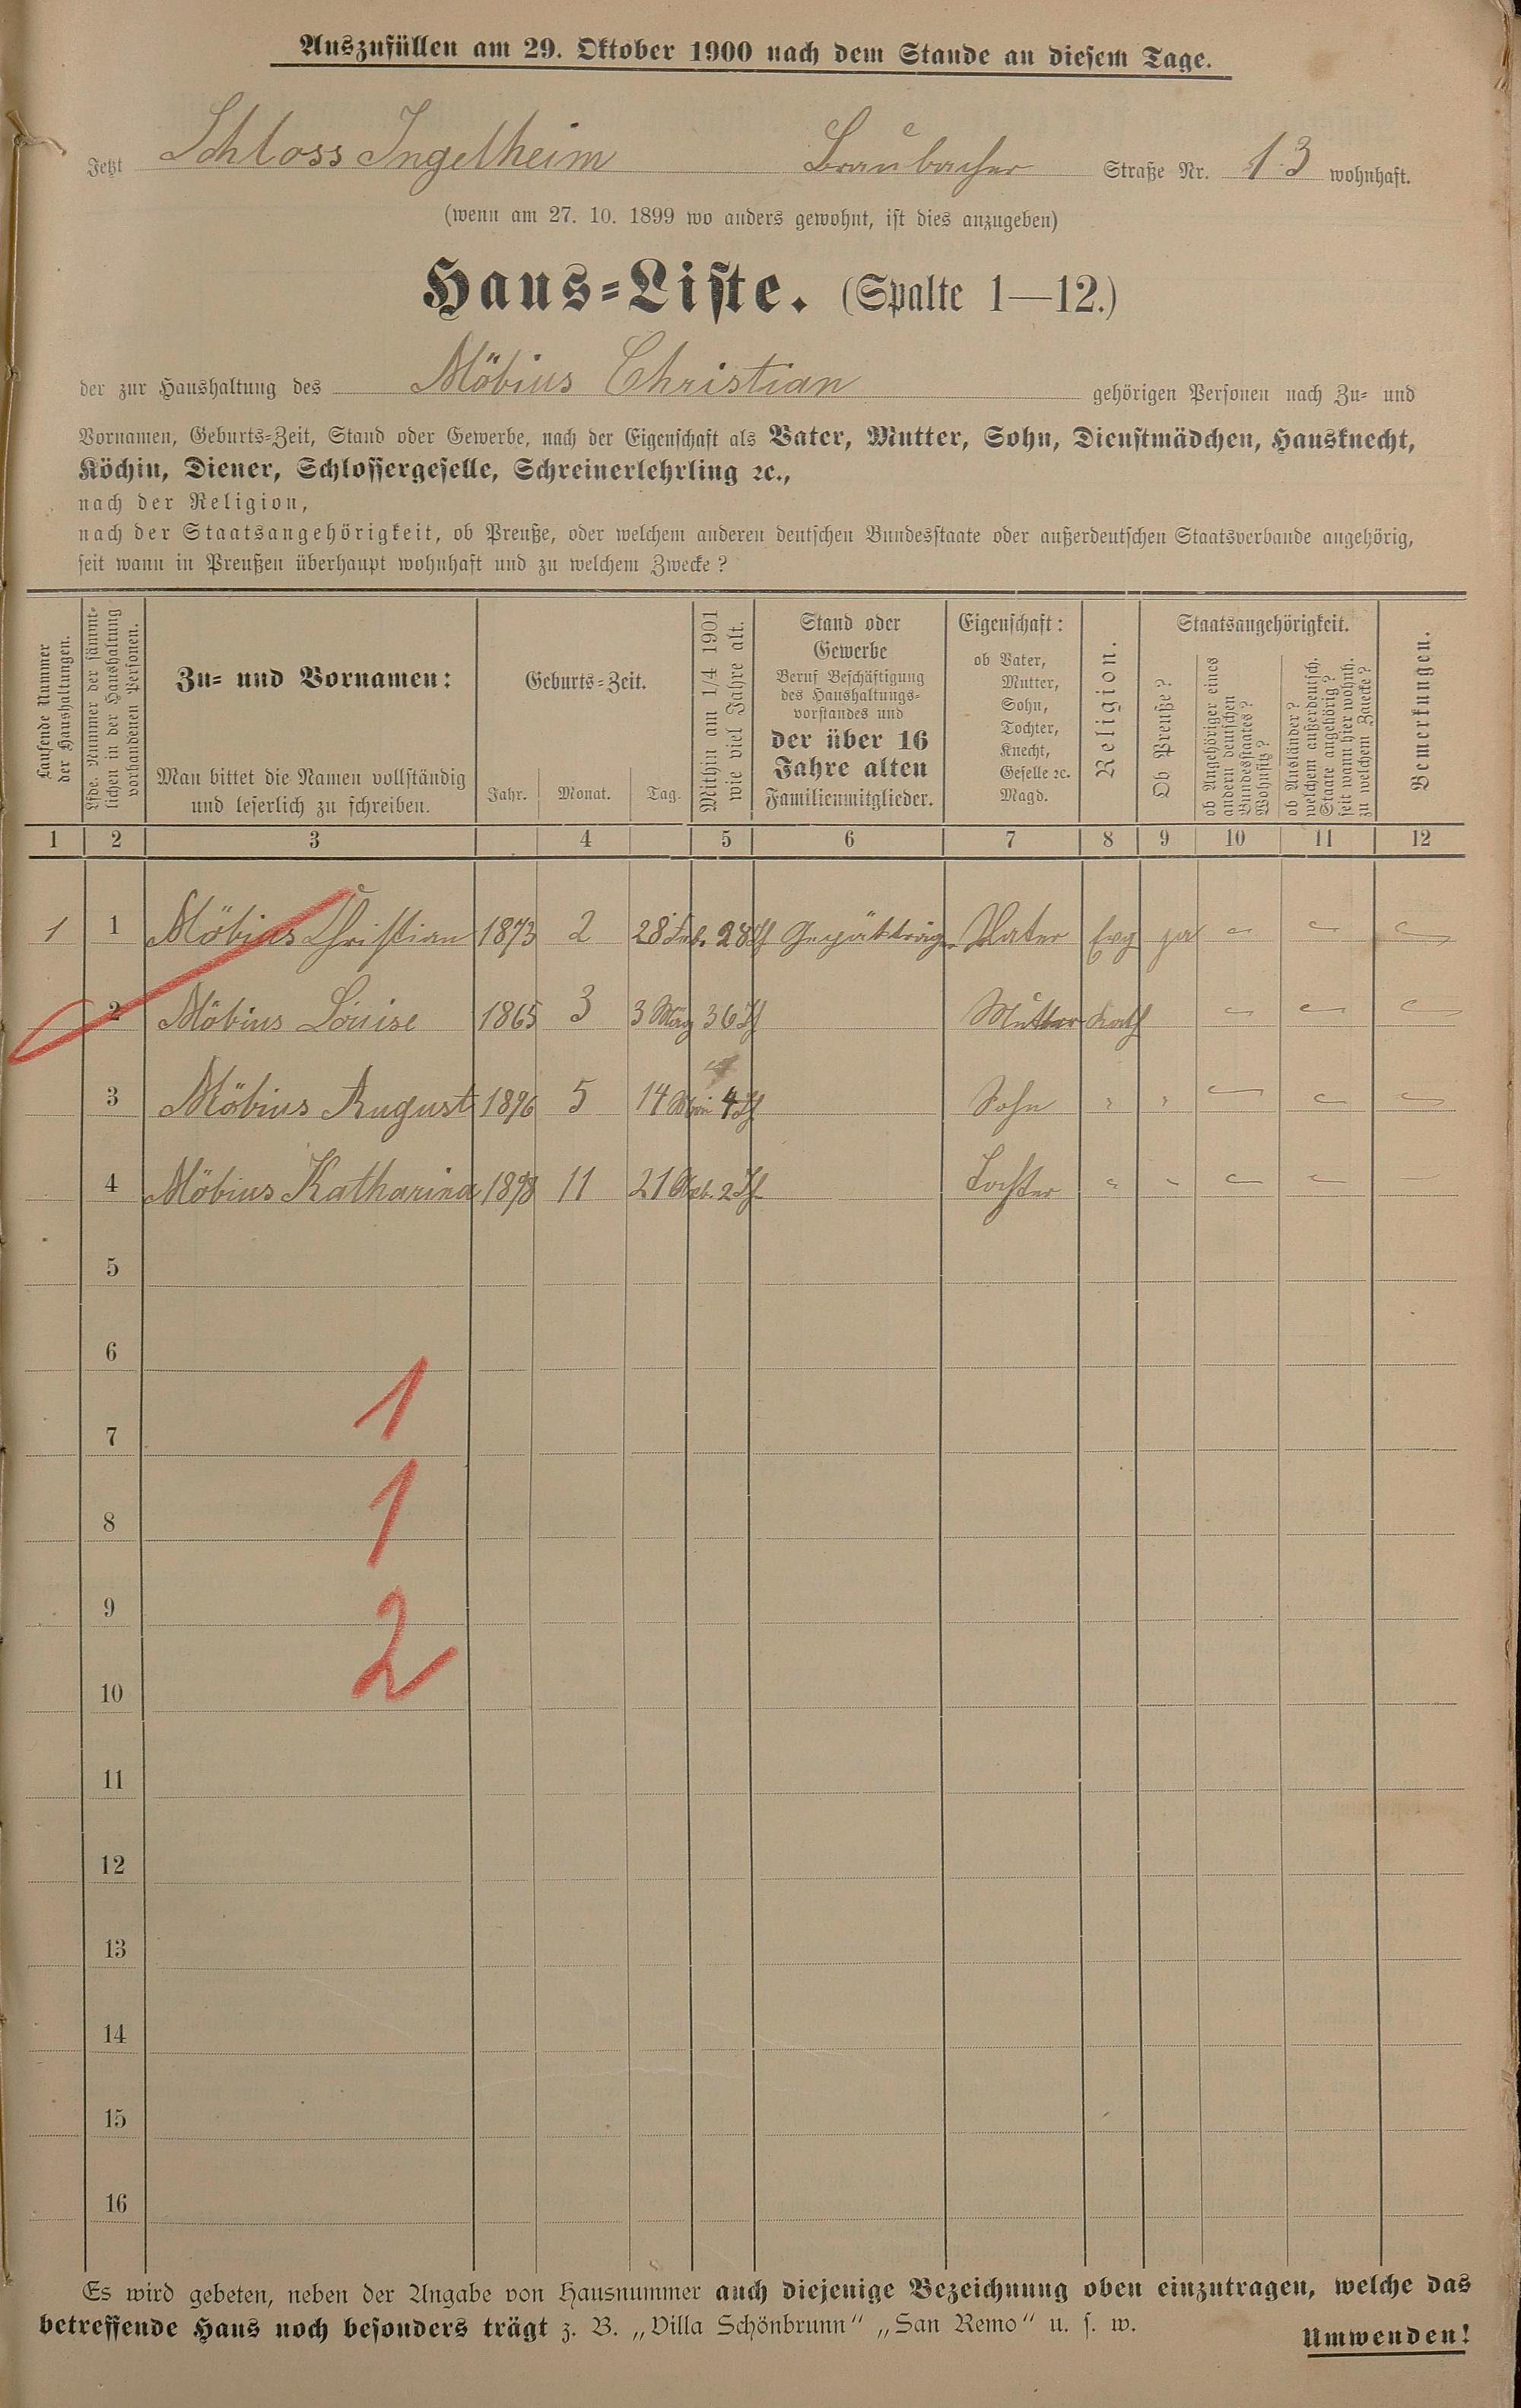 Auszufüllen am 29. Oktober 1900 nach dem Stande an diesem Tage.
Jetzt Schloss Ingelheim Braubacher Straße Nr. 13 wohnhaft.
(wenn am 27. 10. 1899 wo anders gewohnt, ist dies anzugeben)
Haus-Liste. (Spalte 1—12.)
der zur Haushaltung des Möbius Christian gehörigen Personen nach Zu- und
Vornamen, Geburts-Zeit, Stand oder Gewerbe, nach der Eigenschaft als Vater, Mutter, Sohn, Dienstmädchen, Hausknecht,
Köchin, Diener, Schlossergeselle, Schreinerlehrling ꝛc.,
nach der Religion,
nach der Staatsangehörigkeit, ob Preuße, oder welchem anderen deutschen Bundesstaate oder außerdeutschen Staatsverbande angehörig,
seit wann in Preußen überhaupt wohnhaft und zu welchem Zwecke?
Laufende Nummer
der Haushaltungen.
Lfde. Nummer der sämmt-
lichen in der Haushaltung
vorhandenen Personen.
Zu- und Vornamen:
Man bittet die Namen vollständig
und leserlich zu schreiben.
Geburts-Zeit.
Jahr. Monat. Tag.
Mithin am 1/4 1901
wie viel Jahre alt.
Stand oder
Gewerbe
Beruf Beschäftigung
des Haushaltungs-
vorstandes und
der über 16
Jahre alten
Familienmitglieder.
Eigenschaft:
ob Vater,
Mutter,
Sohn,
Tochter,
Knecht,
Geselle ꝛc.
Magd.
Religion.
Staatsangehörigkeit.
Ob Preuße?
ob Angehöriger eines
andern deutschen
Bundesstaates?
Wohnsitz?
ob Ausländer?
welchem außerdeutsch.
Staate angehörig?
seit wann hier wohnh.
zu welchem Zwecke?
Bemerkungen.
1 2 3 4 5 6 7 8 9 10 11 12
1 1 Möbius Christian 1873 2 28 Feb. 28 J Vater Evg ja
2 Möbius Louise 1865 3 3 März 36 J Mutter Kath
3 Möbius August 1896 5 14 Mai 4 J Sohn " "
4 Möbius Katharina 1898 11 21 2 J Tochter " "
5
6
1
7
1
8
9
2
10
11
12
13
14
15
16
Es wird gebeten, neben der Angabe von Hausnummer auch diejenige Bezeichnung oben einzutragen, welche das
betreffende Haus noch besonders trägt z. B. „Villa Schönbrunn" „San Remo" u. s. w.
Umwenden!